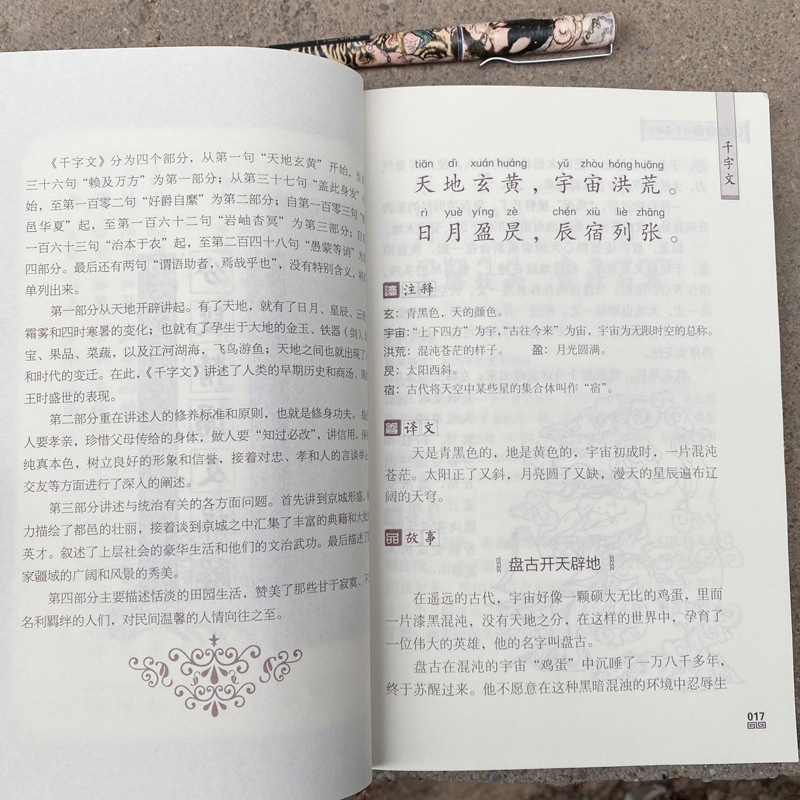 《千字文》分为四个部分，从第一句“天地玄黄”开始，至
三十六句“赖及万方”为第一部分；从第三十七句“盖此身发”
始，至第一百零二句“好爵自縻”为第二部分；自第一百零三句
邑华夏”起，至第一百六十二句“岩岫杳冥”为第三部分；自
一百六十三句“治本于农”起，至第二百四十八句“愚蒙等诮”为
四部分。最后还有两句“谓语助者，焉哉乎也”，没有特别含义，
单列出来。
第一部分从天地开辟讲起。有了天地，就有了日月、星辰、云
霜雾和四时寒暑的变化；也就有了孕生于大地的金玉、铁器（剑）、
宝、果品、菜蔬，以及江河湖海，飞鸟游鱼；天地之间也就出现了
和时代的变迁。在此，《千字文》讲述了人类的早期历史和商汤、
王时盛世的表现。
第二部分重在讲述人的修养标准和原则，也就是修身功夫。
人要孝亲，珍惜父母传给的身体，做人要“知过必改”，讲信用，保
纯真本色，树立良好的形象和信誉，接着对忠、孝和人的言谈举止
交友等方面进行了深入的阐述。
第三部分讲述与统治有关的各方面问题。首先讲到京城形盛，
力描绘了都邑的壮丽，接着谈到京城之中汇集了丰富的典籍和大批
英才。叙述了上层社会的豪华生活和他们的文治武功。最后描述了
家疆域的广阔和风景的秀美。
第四部分主要描述恬淡的田园生活，赞美了那些甘于寂寞、不
名利羁绊的人们，对民间温馨的人情向往之至。
千字文
tiān dì xuán huáng yǔ zhòu hóng huāng
天地玄黄，宇宙洪荒。
rì yuè yíng zè chén xiù liè zhāng
日月盈昃，辰宿列张。
注释
玄：青黑色，天的颜色。
宇宙：“上下四方”为宇，“古往今来”为宙，宇宙为无限时空的总称。
洪荒：混沌苍茫的样子。 盈：月光圆满。
昃：太阳西斜。
宿：古代将天空中某些星的集合体叫作“宿”。
译文
天是青黑色的，地是黄色的，宇宙初成时，一片混沌
苍茫。太阳正了又斜，月亮圆了又缺，漫天的星辰遍布辽
阔的天穹。
故事
盘古开天辟地
在遥远的古代，宇宙好像一颗硕大无比的鸡蛋，里面
一片漆黑混沌，没有天地之分，在这样的世界中，孕育了
一位伟大的英雄，他的名字叫盘古。
盘古在混沌的宇宙“鸡蛋”中沉睡了一万八千多年，
终于苏醒过来。他不愿意在这种黑暗混浊的环境中忍辱生
017